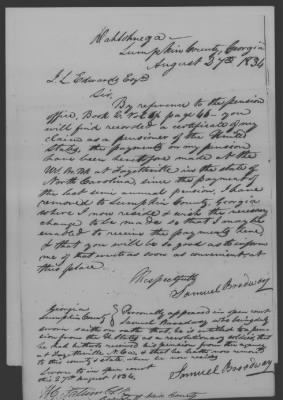 Dahlohnega –
Lumpkin County, Georgia
August 27th 1834
J L Edwards Esqr
Sir,
By reference to the pension
office, Book E Vol 6½ page 66 – you
will find recorded a certificate of my
claim as a pensioner of the United
States, the payments on my pension
have been heretofore made at the
at Fayetteville in the state of
North Carolina, since the payment of
the last semi annual pension, I have
removed to Lumpkin County Georgia
where I now reside & wish the necessary
change to be made so that I may be
enabled to receive the payments here
& that you will be so good as to inform
me of that as soon as convenient at
this place.
Respectfully
Samuel Broadway
Georgia
Lumpkin County
Personally appeared in open court
Samuel Broadway who being duly
sworn saith on oath that he is entitled to a pen
sion from the U States as a revolutionary soldier, that
he has hitherto received his pension from the agency
at Fayetteville N. Ca, & that he hath now removed
to this county & state where he now resides
Sworn to in open court
this 27th august 1834.
Samuel Broadway